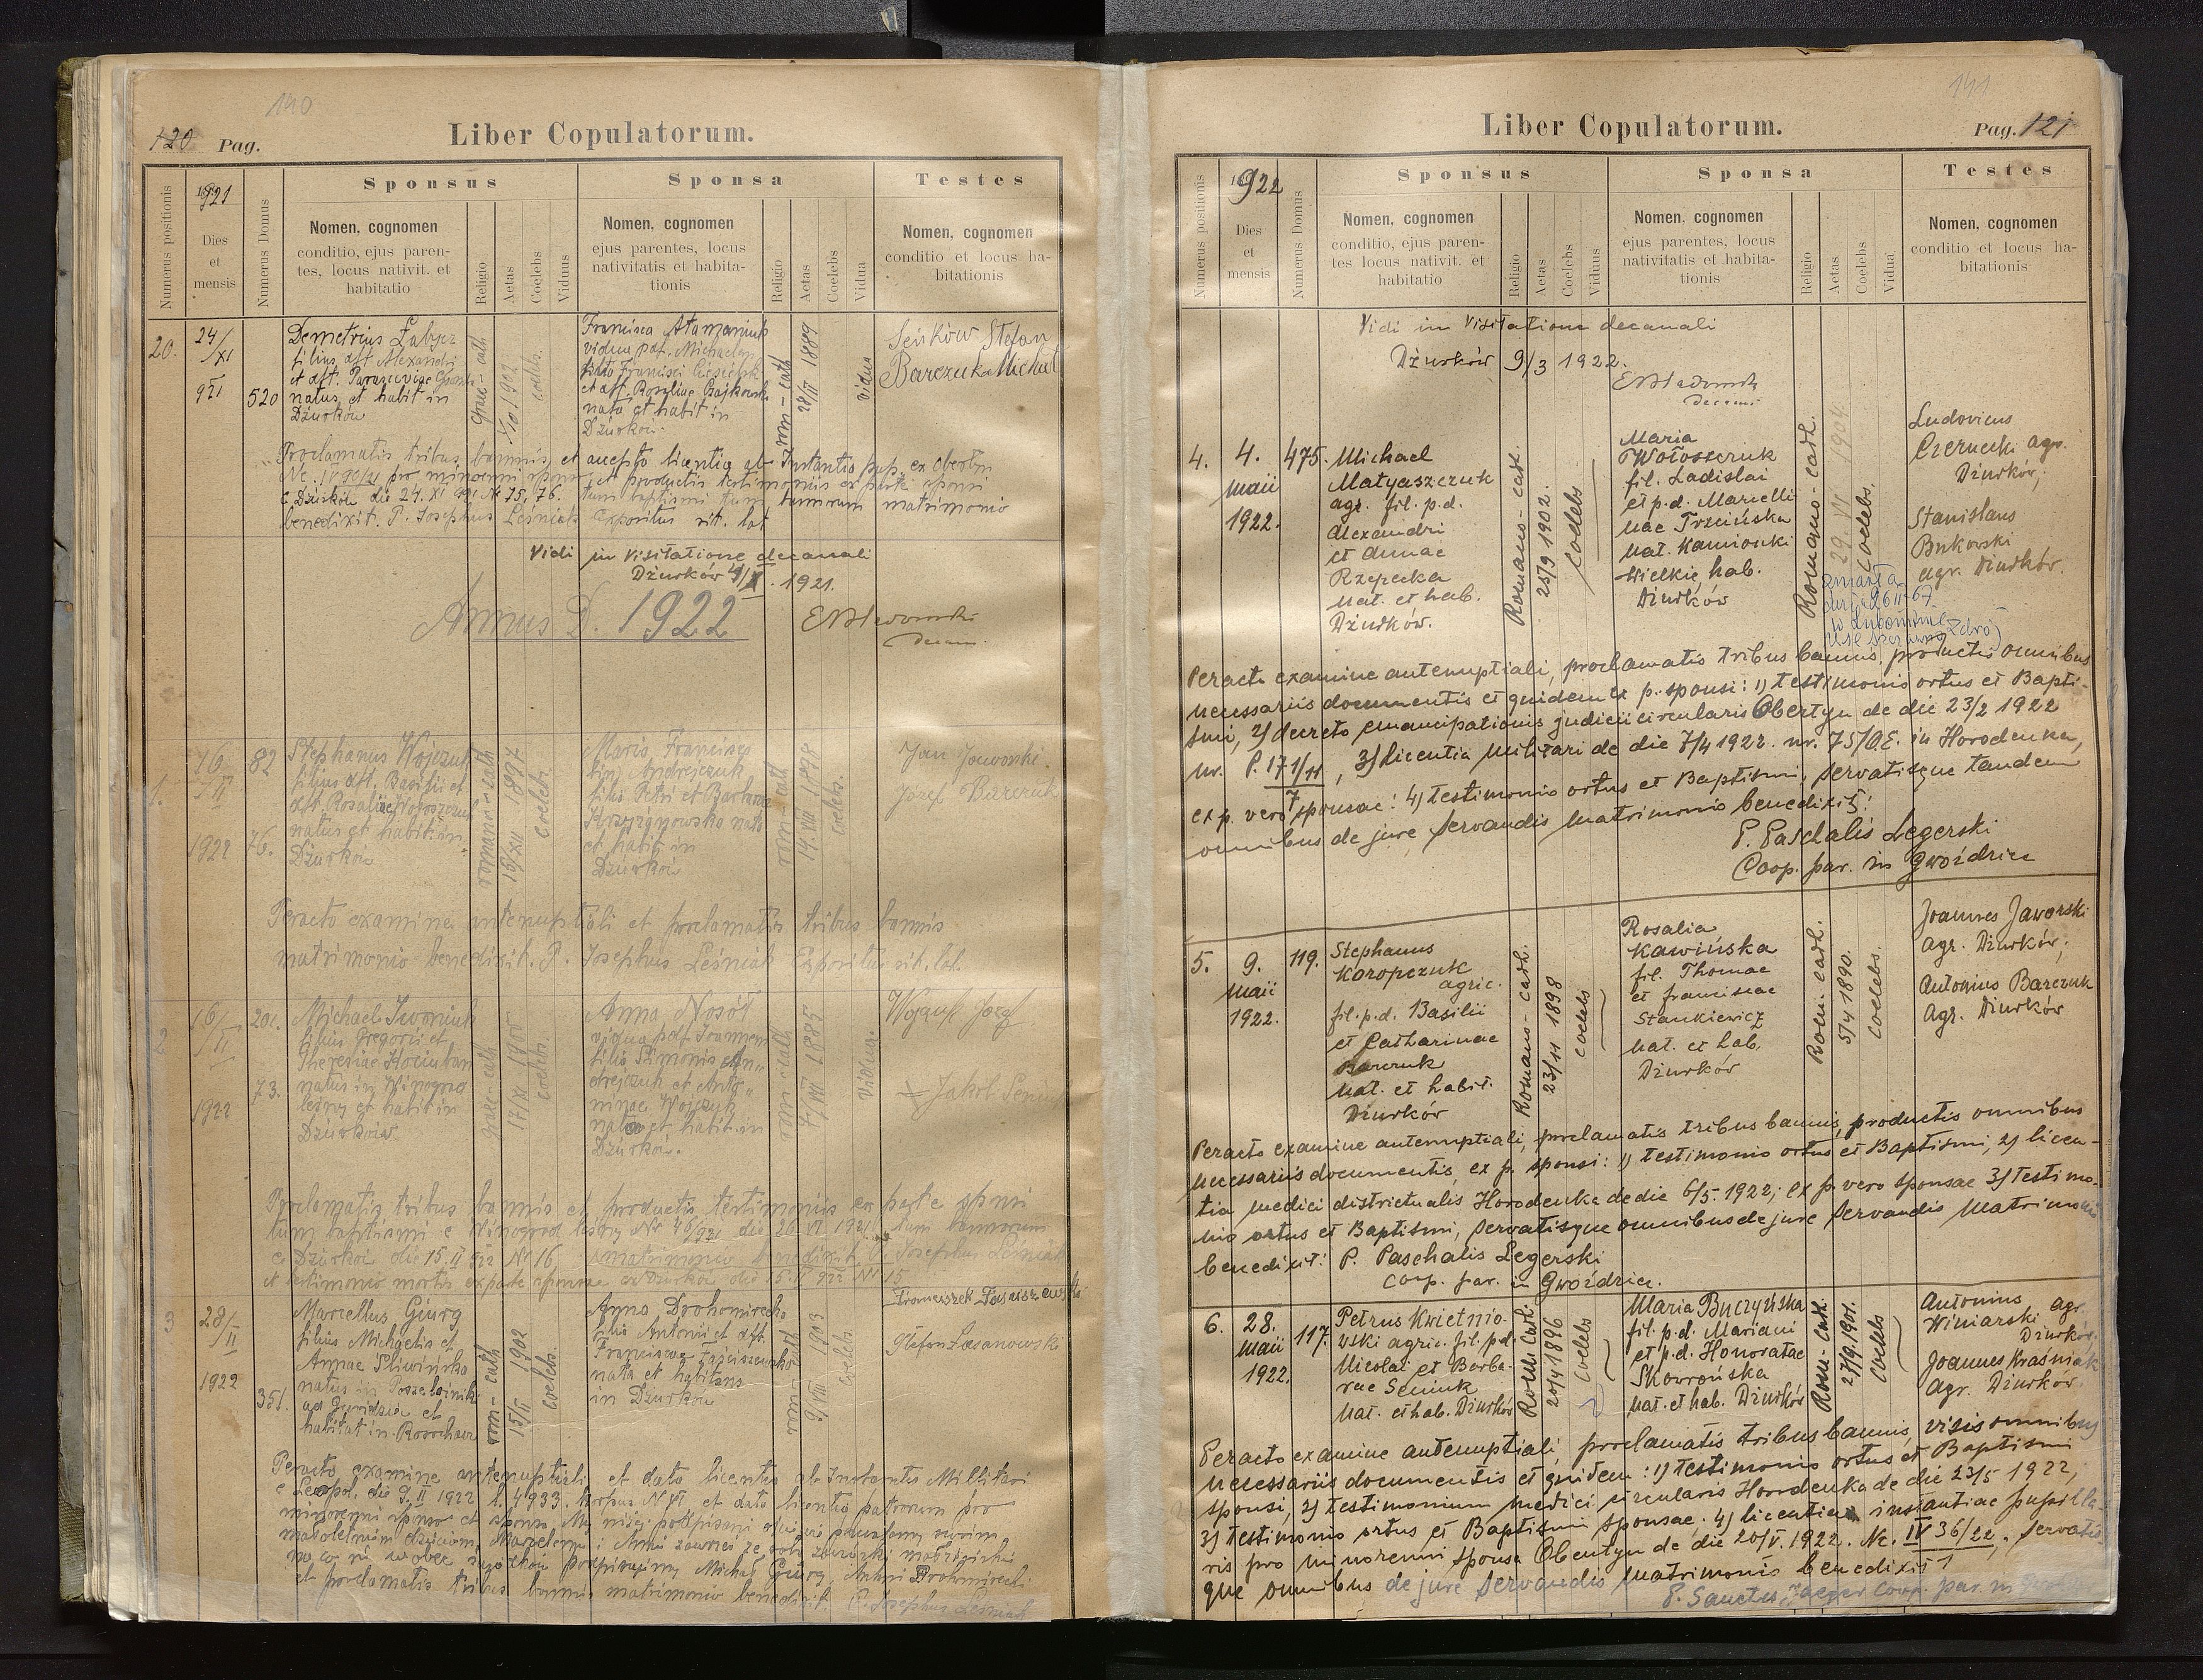 140
120 Pag.
Liber Copulatorum.
Numerus positionis
1921
Dies
et
mensis
Numerus Domus
Sponsus
Nomen, cognomen
conditio, ejus paren-
tes, locus nativit. et
habitatio
Religio
Aetas
Coelebs
Viduus
Sponsa
Nomen, cognomen
ejus parentes, locus
nativitatis et habita-
tionis
Religio
Aetas
Coelebs
Vidua
Testes
Nomen, cognomen
conditio et locus ha-
bitationis
20.
24/XI
921
520
Demetrius
filius dft Alexandri
et dft.
natus et habit in
Dźurków
graec-cath
1902
coelebs.
Francisca Atamaniuk
vidua p.d. Michaelem
filia Francisci
et dft. Rosaliae Czajkowska
nata et habit in
Dźurków.
rom-cath
1889
vidua
Seńków Stefan
Barczuk Michał
Proclamatis tribus bannis, et accepto licentia ab Instantia pup. ex Obertyn
Nc. IV 90/21 pro minorenni sponso, et productis testimoniis ex parte sponsi
e Dźurków die 24. XI 921 Nr 75, 76. tum baptismi tum bannorum matrimonio
benedixit. P. Josephus Leśniak Expositus rit. lat.
Vidi in visitatione decanali
Dźurków 1921.
Annus D. 1922
1.
16/II
1922
82
76.
Stephanus Wojczuk
filius dft. Basilii et
dft. Rosaliae Wołoszczuk
natus et habit in
Dźurków
romano-cath
16/XII 1897
coelebs
Maria Francisca
bin. Andrejczuk
filia Petri et Barbara
Krzyżanowska nata
et habit in
Dźurków
rom-cath
14. VIII 1898
coelebs.
Jan Jaworski.
Józef Barczuk
Peracto examine antenuptiali et proclamatis tribus bannis
matrimonio benedixit. P. Josephus Leśniak Expositus rit. lat.
2
16/II
1922
201.
73.
Michael Iwoniuk
filius Gregorii et
Theresiae
natus in Winograd
leśny et habit in
Dźurków.
graec-cath
17/XI 1900
coelebs.
Anna Nosol
vidua pdf. Joannem
filia Simonis An-
drejczuk et Anto-
ninae Wojczuk
nata et habit. in
Dźurków.
rom-cath
7/VII 1885
vidua.
Wojczuk Józef
+ Jakób Seniuk
Proclamatis tribus bannis et productis testimoniis ex parte sponsi
tum baptismi e Winograd leśny Nr 46/921 die 26 VI 1921 tum bannorum
e Dźurków die 15. II 922 Nr 16, matrimonio benedixit P. Josephus Leśniak
et testimonio mortis ex parte sponsae ex Dźurków die 15. II 922 Nr 15
3
28/II
1922
351.
Marcellus Giurg
filius Michaelis et
Annae Śliwińska
natus in
ad Gwoździec et
habitat in Rosochacz
rom-cath
15/II 1902
coelebs.
Anna Drohomirecka
filia Antonii et dft.
Franciscae Trzciszewska
nata et habitans
in Dźurków
rom-cath
9/VIII 1903
coelebs.
Franciszek
Stefan Łasanowski
Peracto examine antenuptiali et data licentia ab Instantia Militari
e Leopol. die 9. II 1922 L. 4933. Korpus N VI, et data licentia patrorum pro
minorenni sponso et sponsa My niżej podpisani
małoletnim dzieciom, Marcelemu i Annie zawrzeć ze sobą związki małżeńskie
na co się w obec świadków podpisujemy Michał Giurg, Antoni Drohomirecki
et proclamatis tribus bannis matrimonio benedixit. P. Josephus Leśniak
141
Liber Copulatorum.
Pag. 121
Numerus positionis
1922
Dies
et
mensis
Numerus Domus
Sponsus
Nomen, cognomen
conditio, ejus paren-
tes locus nativit. et
habitatio
Religio
Aetas
Coelebs
Viduus
Sponsa
Nomen, cognomen
ejus parentes, locus
nativitatis et habita-
tionis
Religio
Aetas
Coelebs
Vidua
Testes
Nomen, cognomen
conditio et locus ha-
bitationis
Vidi in visitatione decanali
Dźurków 9/3 1922.
4.
4.
maii
1922.
475.
Michael
Matyaszczuk
agr. fil. p.d.
Alexandri
et Annae
Rzepecka
nat. et hab.
Dźurków.
Romano-cath.
25/9 1902.
coelebs
Maria
Wołoszczuk
fil. Ladislai
et p.d. Marcelli
nae Trzcińska
nat. Kamionki
Wielkie, hab.
Dźurków
Romano-cath.
29 VI 1904.
coelebs.
zmarła
dnia 26 II-67.
Ludovicus
Czernecki agr.
Dźurków;
Stanislaus
Bukowski
agr. Dźurków.
Peracto examine antenuptiali, proclamatis tribus bannis, productis omnibus
necessariis documentis et quidem ex p. sponsi: 1) testimonio ortus et Bapti-
smi, 2) decreto emancipationis judicii circularis Obertyn de die 23/2 1922
nr. P. 171/11/7, 3) licentia militari de die 7/4 1922. nr. 75/QE. in Horodenka,
ex p. vero sponsae: 4) testimonio ortus et Baptismi, servatisque tandem
omnibus de jure servandis matrimonio benedixit:
P. Paschalis Legerski
Coop. par. in Gwoździec
5.
9.
maii
1922.
119.
Stephanus
Koropczuk
agric.
fil. p.d. Basilii
et Catharinae
Barczuk
nat. et habit.
Dźurków
Romano-cath.
23/11 1898
coelebs
Rosalia
Kawińska
fil. Thomae
et Franciscae
Stankiewicz
nat. et hab.
Dźurków
Rom.-cath.
5/4 1890.
coelebs.
Joannes Jaworski
agr. Dźurków;
Antonius Barczuk
agr. Dźurków
Peracto examine antenuptiali, proclamatis tribus bannis, productis omnibus
necessariis documentis, ex p. sponsi: 1) testimonio ortus et Baptismi, 2) licen-
tia medici districtualis Horodenka de die 6/5. 1922; ex p. vero sponsae 3) testimo-
nio ortus et Baptismi, servatisque omnibus de jure servandis matrimonio
benedixit: P. Paschalis Legerski
coop. par. in Gwoździec.
6.
28.
maii
1922.
117.
Petrus Kwietnio-
wski agric. fil. p.d.
Nicolai et Barba-
rae Seniuk
nat. et hab. Dźurków
Rom.-cath.
20/4 1896
coelebs
Maria Buczyńska
fil. p.d. Mariani
et p.d. Honoratae
Skowrońska
nat. et hab. Dźurków
Rom.-cath.
27/9. 1901.
coelebs
Antonius
Winiarski agr.
Dźurków.
Joannes Kraśniak
agr. Dźurków
Peracto examine antenuptiali, proclamatis tribus bannis, visis omnibus
necessariis documentis et quidem: 1) testimonio ortus et Baptismi
sponsi, 2) testimonium medici circularis Horodenka de die 23/5 1922,
3) testimonio ortus et Baptismi sponsae. 4) licentia instantiae pupilla-
ris pro minorenni sponsa Obertyn de die 20/V. 1922. Nc. IV 36/22, servatis
que omnibus de jure servandis matrimonio benedixit
P. Sanctus Jaeger Coop. par. in